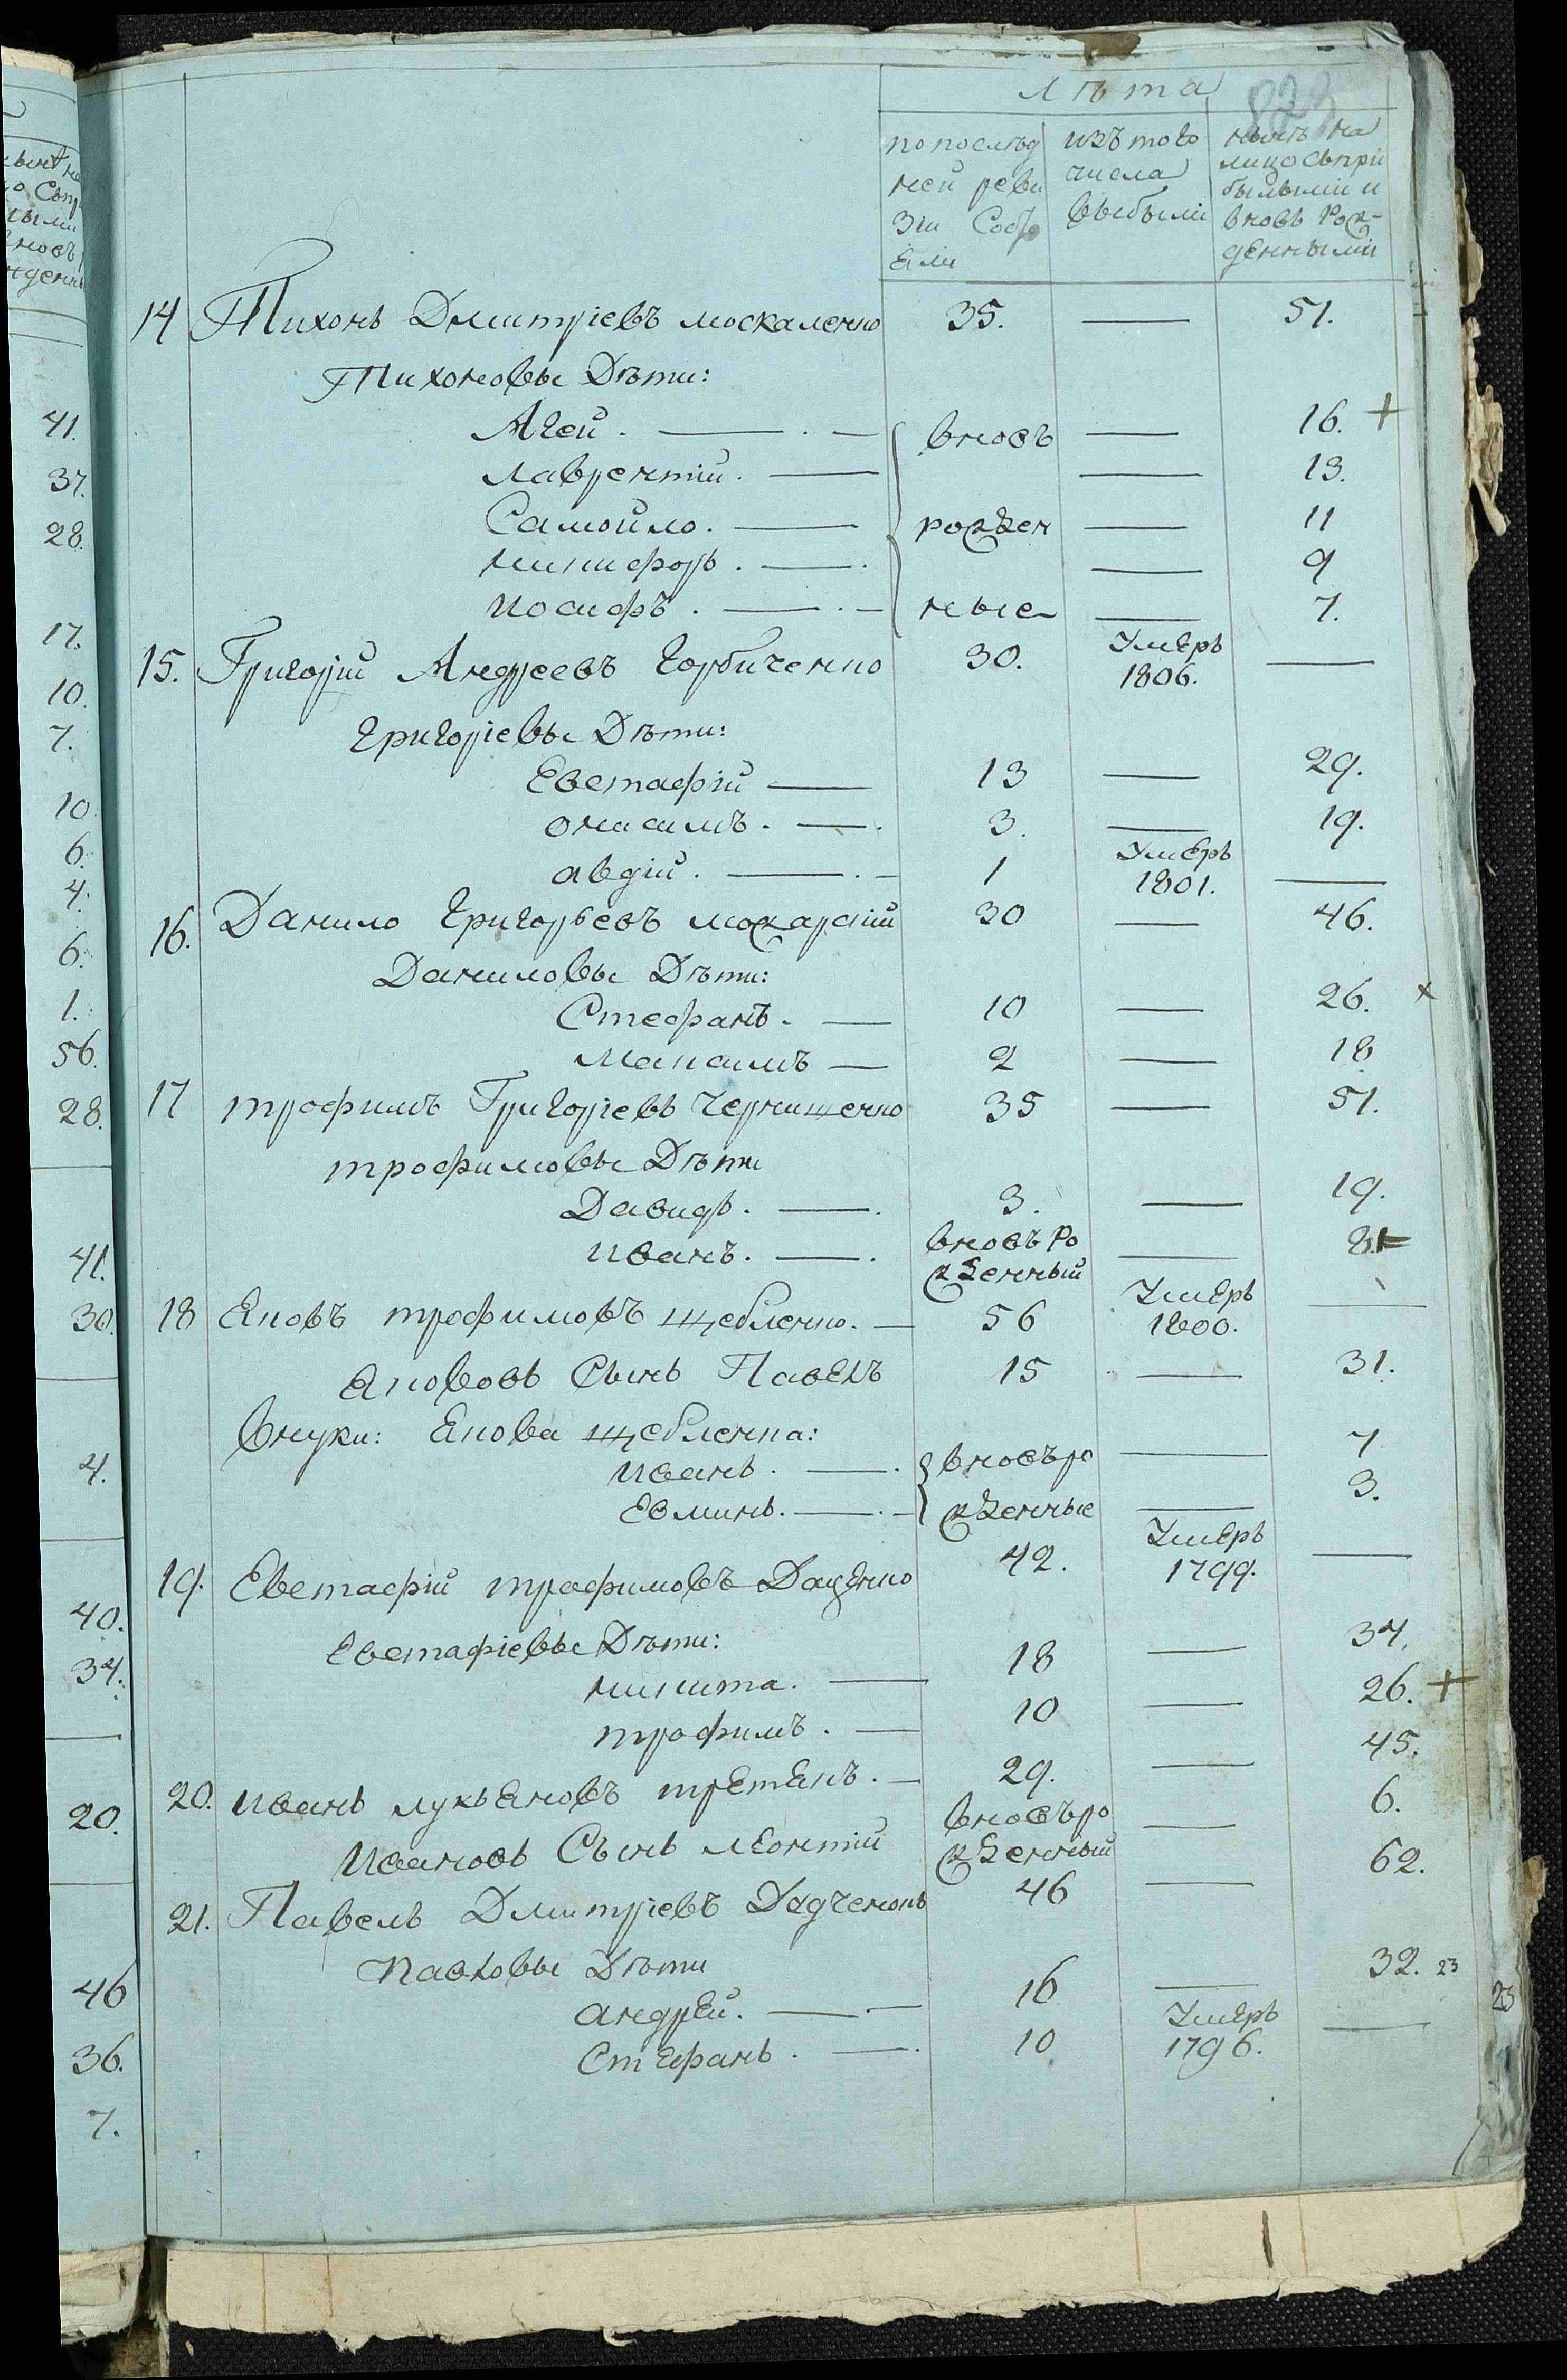 Лѣта
823
по послѣд
ней реви
зіи Состо
яли
изъ того
числа
выбыли
нынѣ на
лицо съпри
былыми и
вновь Рож-
денными
14 Тихонъ Дмитріевъ москаленко 35. — 51.
Тихоновы Дѣти:
Агей. — вновь — 16. +
лаврентій. — — 13.
Самойло. — рожден — 11
никифоръ. — — 9
иосифъ. — ные — 7.
15. Григорій Андреевъ Горбиченко 30. Умеръ 1806. —
Григоріевы Дѣти:
Евстафій — 13 — 29.
онисимъ. — 3. — 19.
авдій. — 1 Умеръ 1801. —
16. Данило Григорьевъ можарскій 30 — 46.
Даниловы Дѣти:
Стефанъ. — 10 — 26. +
Максимъ — 2 — 18
17 трофимъ Григоріевъ Чернишенко 35 — 51.
трофимовы Дѣти
Давидъ. — 3. — 19.
иванъ. — вновь Ро
жденный — 8. +
18 Яковъ трофимовъ щебленко. — 56 Умеръ 1800. —
Якововъ Сынъ Павелъ 15 — 31.
внуки: Якова щебленка:
иванъ. — вновь ро — 7
Евминъ. — жденные — 3.
19. Евстафій трофимовъ Даценко 42. Умеръ 1799. —
Евстафіевы Дѣти:
никита. — 18 — 34.
трофимъ. — 10 — 26. +
20. иванъ лукьяновъ третякъ. — 29. — 45.
Ивановъ Сынъ леонтій вновь ро
жденный — 6.
21. Павелъ Дмитріевъ Дядченокъ 46 — 62.
Павловы Дѣти
андрей. — 16 — 32. 23
Стефанъ. — 10 Умеръ 1796. —
23
41.
37.
28.
17.
10.
7.
10
6.
4.
6.
1.
56.
28.
41.
30.
4.
40.
34.
20.
46
36.
7.